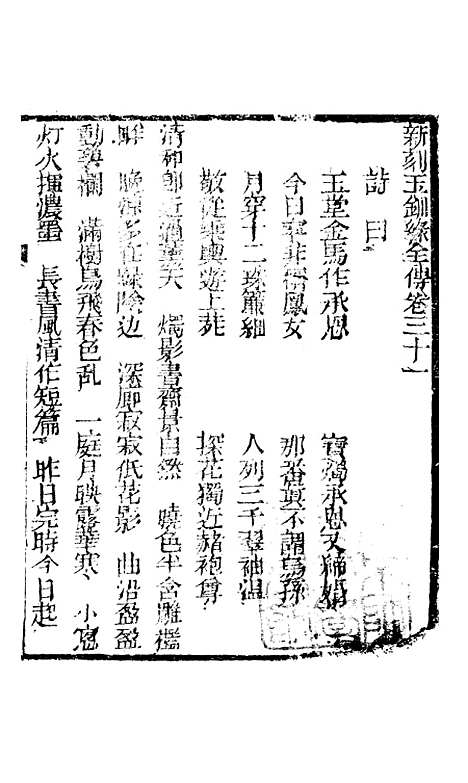 新刻玉釧緣全傳卷三十一
詩曰
玉堂金馬作承恩 寶燭承恩又締姻
今日寧非儒鳳女 那番真不謂烏孫
月穿十二珠簾細 人列三千翠袖温
敬從乘輿遊上苑 探花獨近赭袍尊
清神即近酒 天 燭影書齋景自然 曉色半含雕檻
鮮 晚涼多在綠陰边 深郎寂寂低花影 曲沿盈盈
動 欄 滿樹鳥飛春色乱 一庭月映露華寒 小窓
灯火揮濃墨 長書風清作短篇 昨日完時今日起